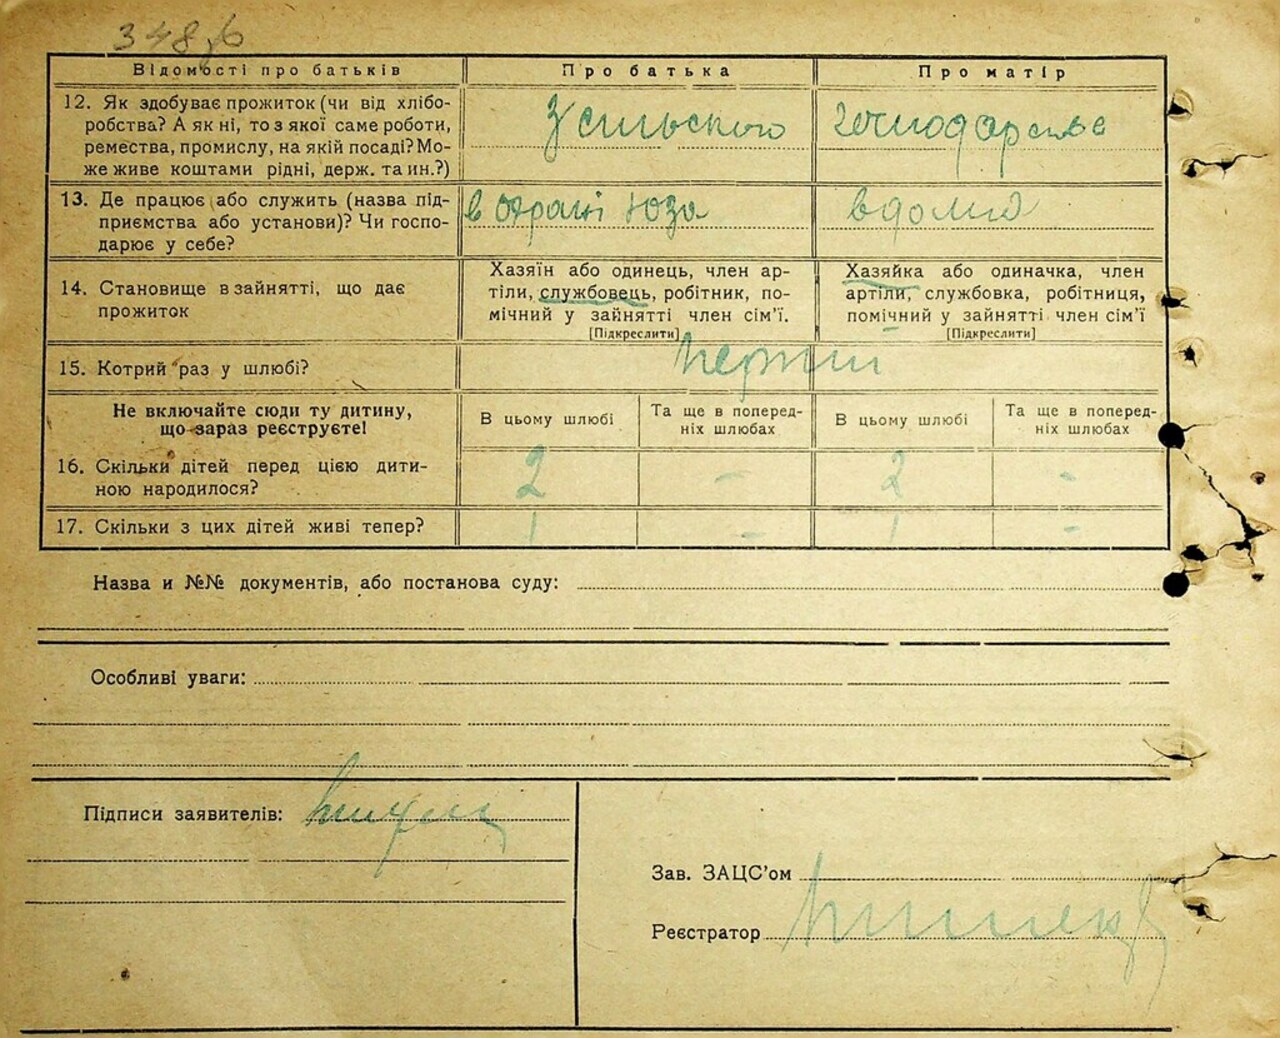 348
Відомості про батьків
Про батька
Про матір
12. Як здобуває прожиток (чи від хлібо-
робства? А як ні, то з якої саме роботи,
ремества, промислу, на якій посаді? Мо-
же живе коштами рідні, держ. та ин.?)
З сильского господарства
13. Де працює або служить (назва під-
приємства або установи)? Чи госпо-
дарює у себе?
в охрані
вдома
14. Становище в зайнятті, що дає
прожиток
Хазяїн або одинець, член ар-
тіли, службовець, робітник, по-
мічний у зайнятті член сім’ї.
[Підкреслити]
Хазяйка або одиначка, член
артіли, службовка, робітниця,
помічний у зайнятті член сім’ї
[Підкреслити]
15. Котрий раз у шлюбі?
Перший
Не включайте сюди ту дитину,
що зараз реєструєте!
В цьому шлюбі
Та ще в поперед-
ніх шлюбах
В цьому шлюбі
Та ще в поперед-
ніх шлюбах
16. Скільки дітей перед цією дити-
ною народилося?
2 - 2 -
17. Скільки з цих дітей живі тепер?
1 - 1 -
Назва и №№ документів, або постанова суду:
Особливі уваги:
Підписи заявителів:
Зав. ЗАЦС’ом
Реєстратор